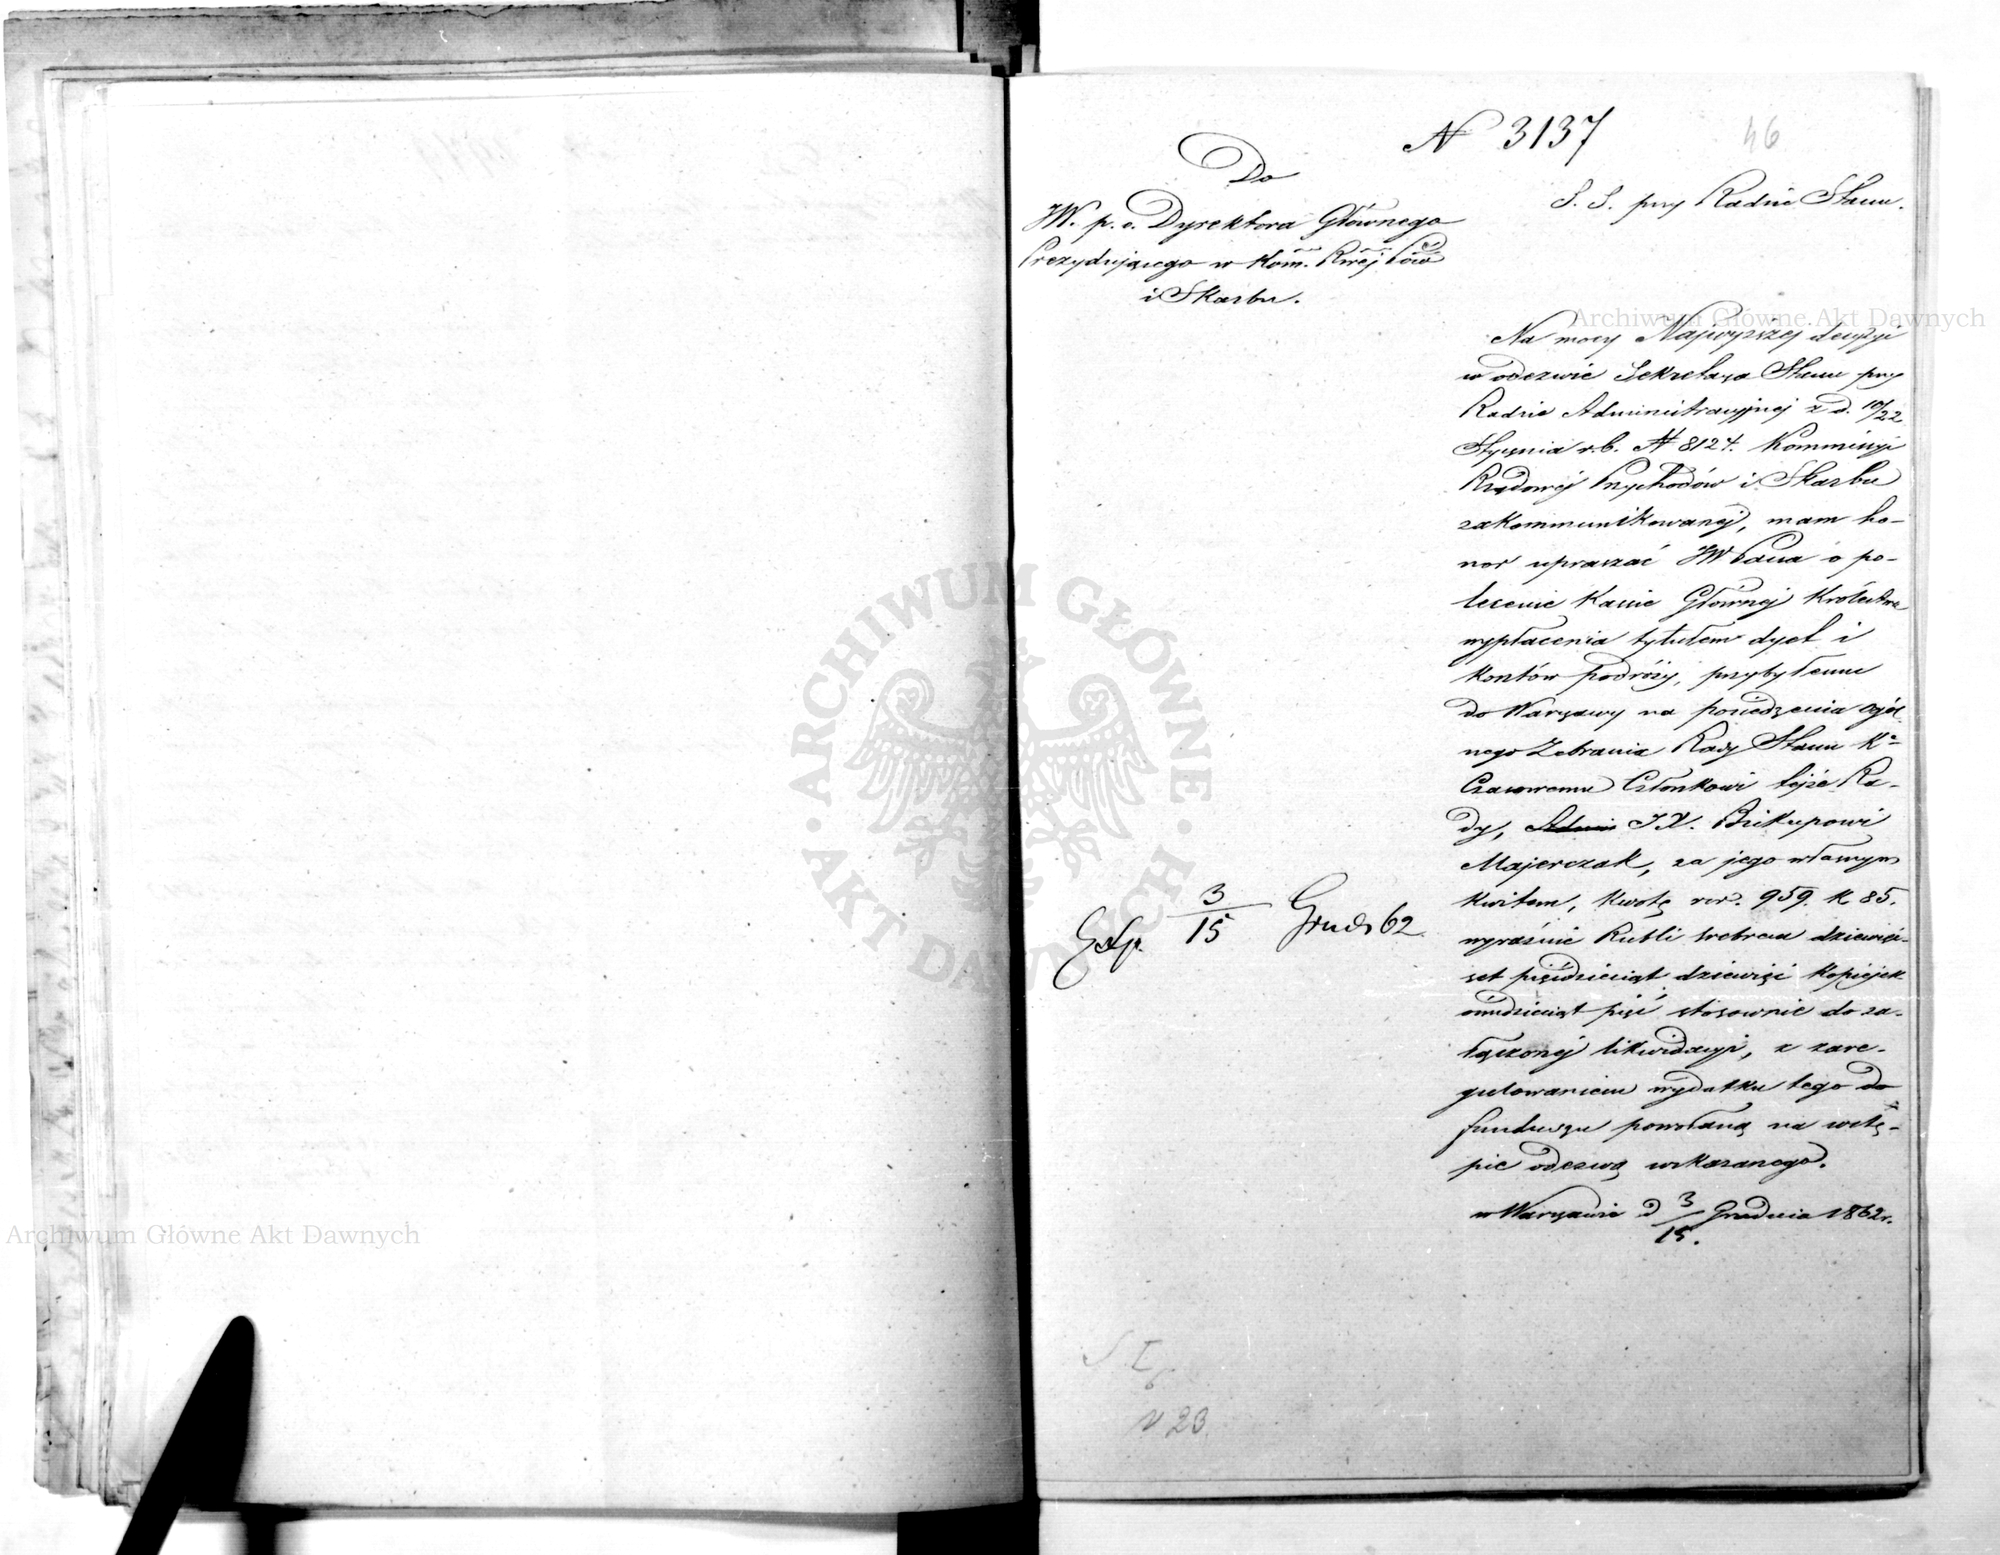 N 3137
46
Do
JW. p. o. Dyrektora Głównego
Prezydującego w Kom. Rwéj Pów
i Skarbu.
S. S. przy Radzie Stanu.
Na mocy Najwyższej decyzyi
w odezwie Sekretarza Stanu przy
Radzie Administracyjnej z d. 10/22
Stycznia r.b. N 8124. Kommissyi
Rządowéj Przychodów i Skarbu
zakommunikowanéj, mam ho-
nor upraszać JW Pana o po-
lecenie Kassie Głównej Królestwa
wypłacenia tytułem dyet i
kosztów podróży, przybyłemu
do Warszawy na posiedzenia Ogól-
nego Zebrania Rady Stanu Kr
Czasowemu Członkowi tejże Ra-
dy, J X. Biskupowi
Majerczak, za jego własnym
kwitem, kwotę rsr. 959 k 85.
wyraźnie Rubli srebrem dziewięć-
set pięćdziesiąt dziewięć kopiejek
ośmdziesiąt pięć stosownie do za-
łączonéj likwidacyi, z zare-
gulowaniem wydatku tego do
funduszu powołaną na wstę-
pie odezwą wskazanego.
w Warszawie d 3/15. Grudnia 1862 r.
Exp. 3/15 Grud 62
S I
6
N 23
Archiwum Główne Akt Dawnych
Archiwum Główne Akt Dawnych
ARCHIWUM GŁÓWNE · AKT DAWNYCH ·